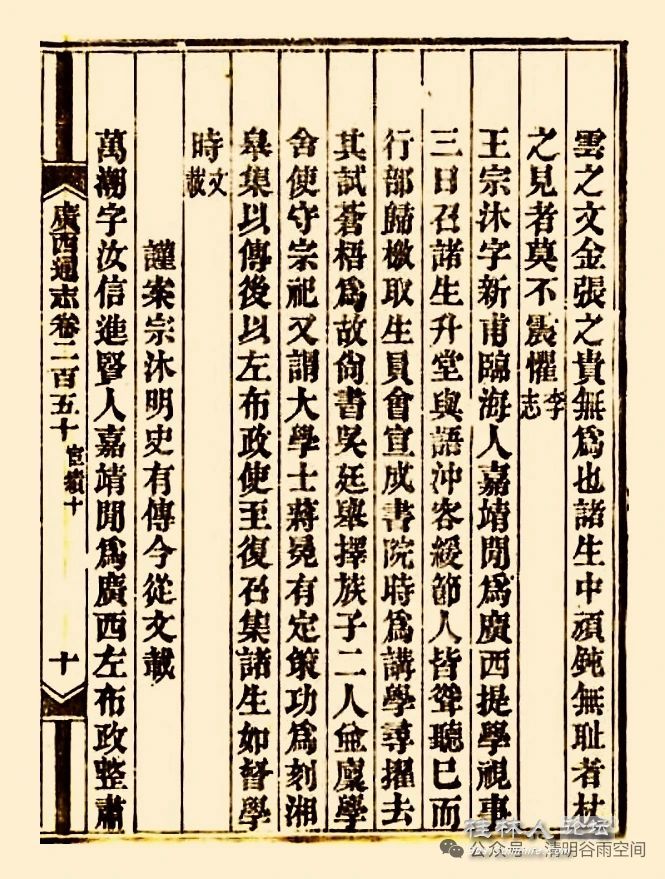 雲之文金張之貴無爲也諸生中頑鈍無耻者杖
之見者莫不震懼李志
王宗沐字新甫臨海人嘉靖閒爲廣西提學視事
三日召諸生升堂與語沖容緩節人皆聳聽已而
行部歸檄取生員會宣成書院時爲講學尋擢去
其試蒼梧爲故尙書吳廷舉擇族子二人僉廩學
舍使守宗祀又謂大學士蔣冕有定策功爲刻湘
臯集以傳後以左布政使至復召集諸生如督學
時文載
謹案宗沐明史有傳今從文載
萬潮字汝信進賢人嘉靖閒爲廣西左布政整肅
廣西通志卷二百五十 宦績十 十
桂林人论坛
公众号 · 清明谷雨空间